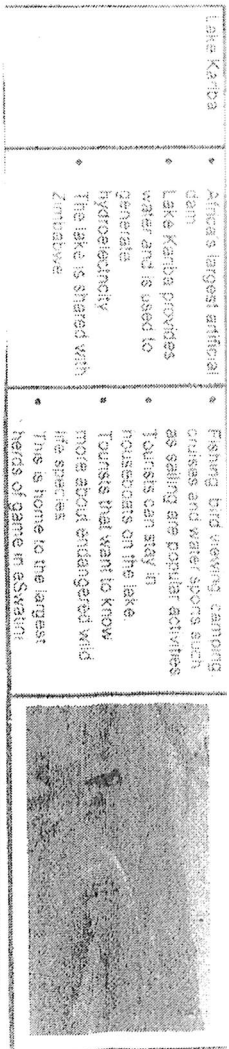 Lake Kariba
• Africa's largest artificial
dam
• Lake Kariba provides
water and is used to
generate
hydroelectricity
• The lake is shared with
Zimbabwe
• Fishing, bird viewing, camping
cruises and water sports such
as sailing are popular activities
• Tourists can stay in
houseboats on the lake.
• Tourists that want to know
more about endangered wild
life species
• This is home to the largest
herds of game in eSwatini